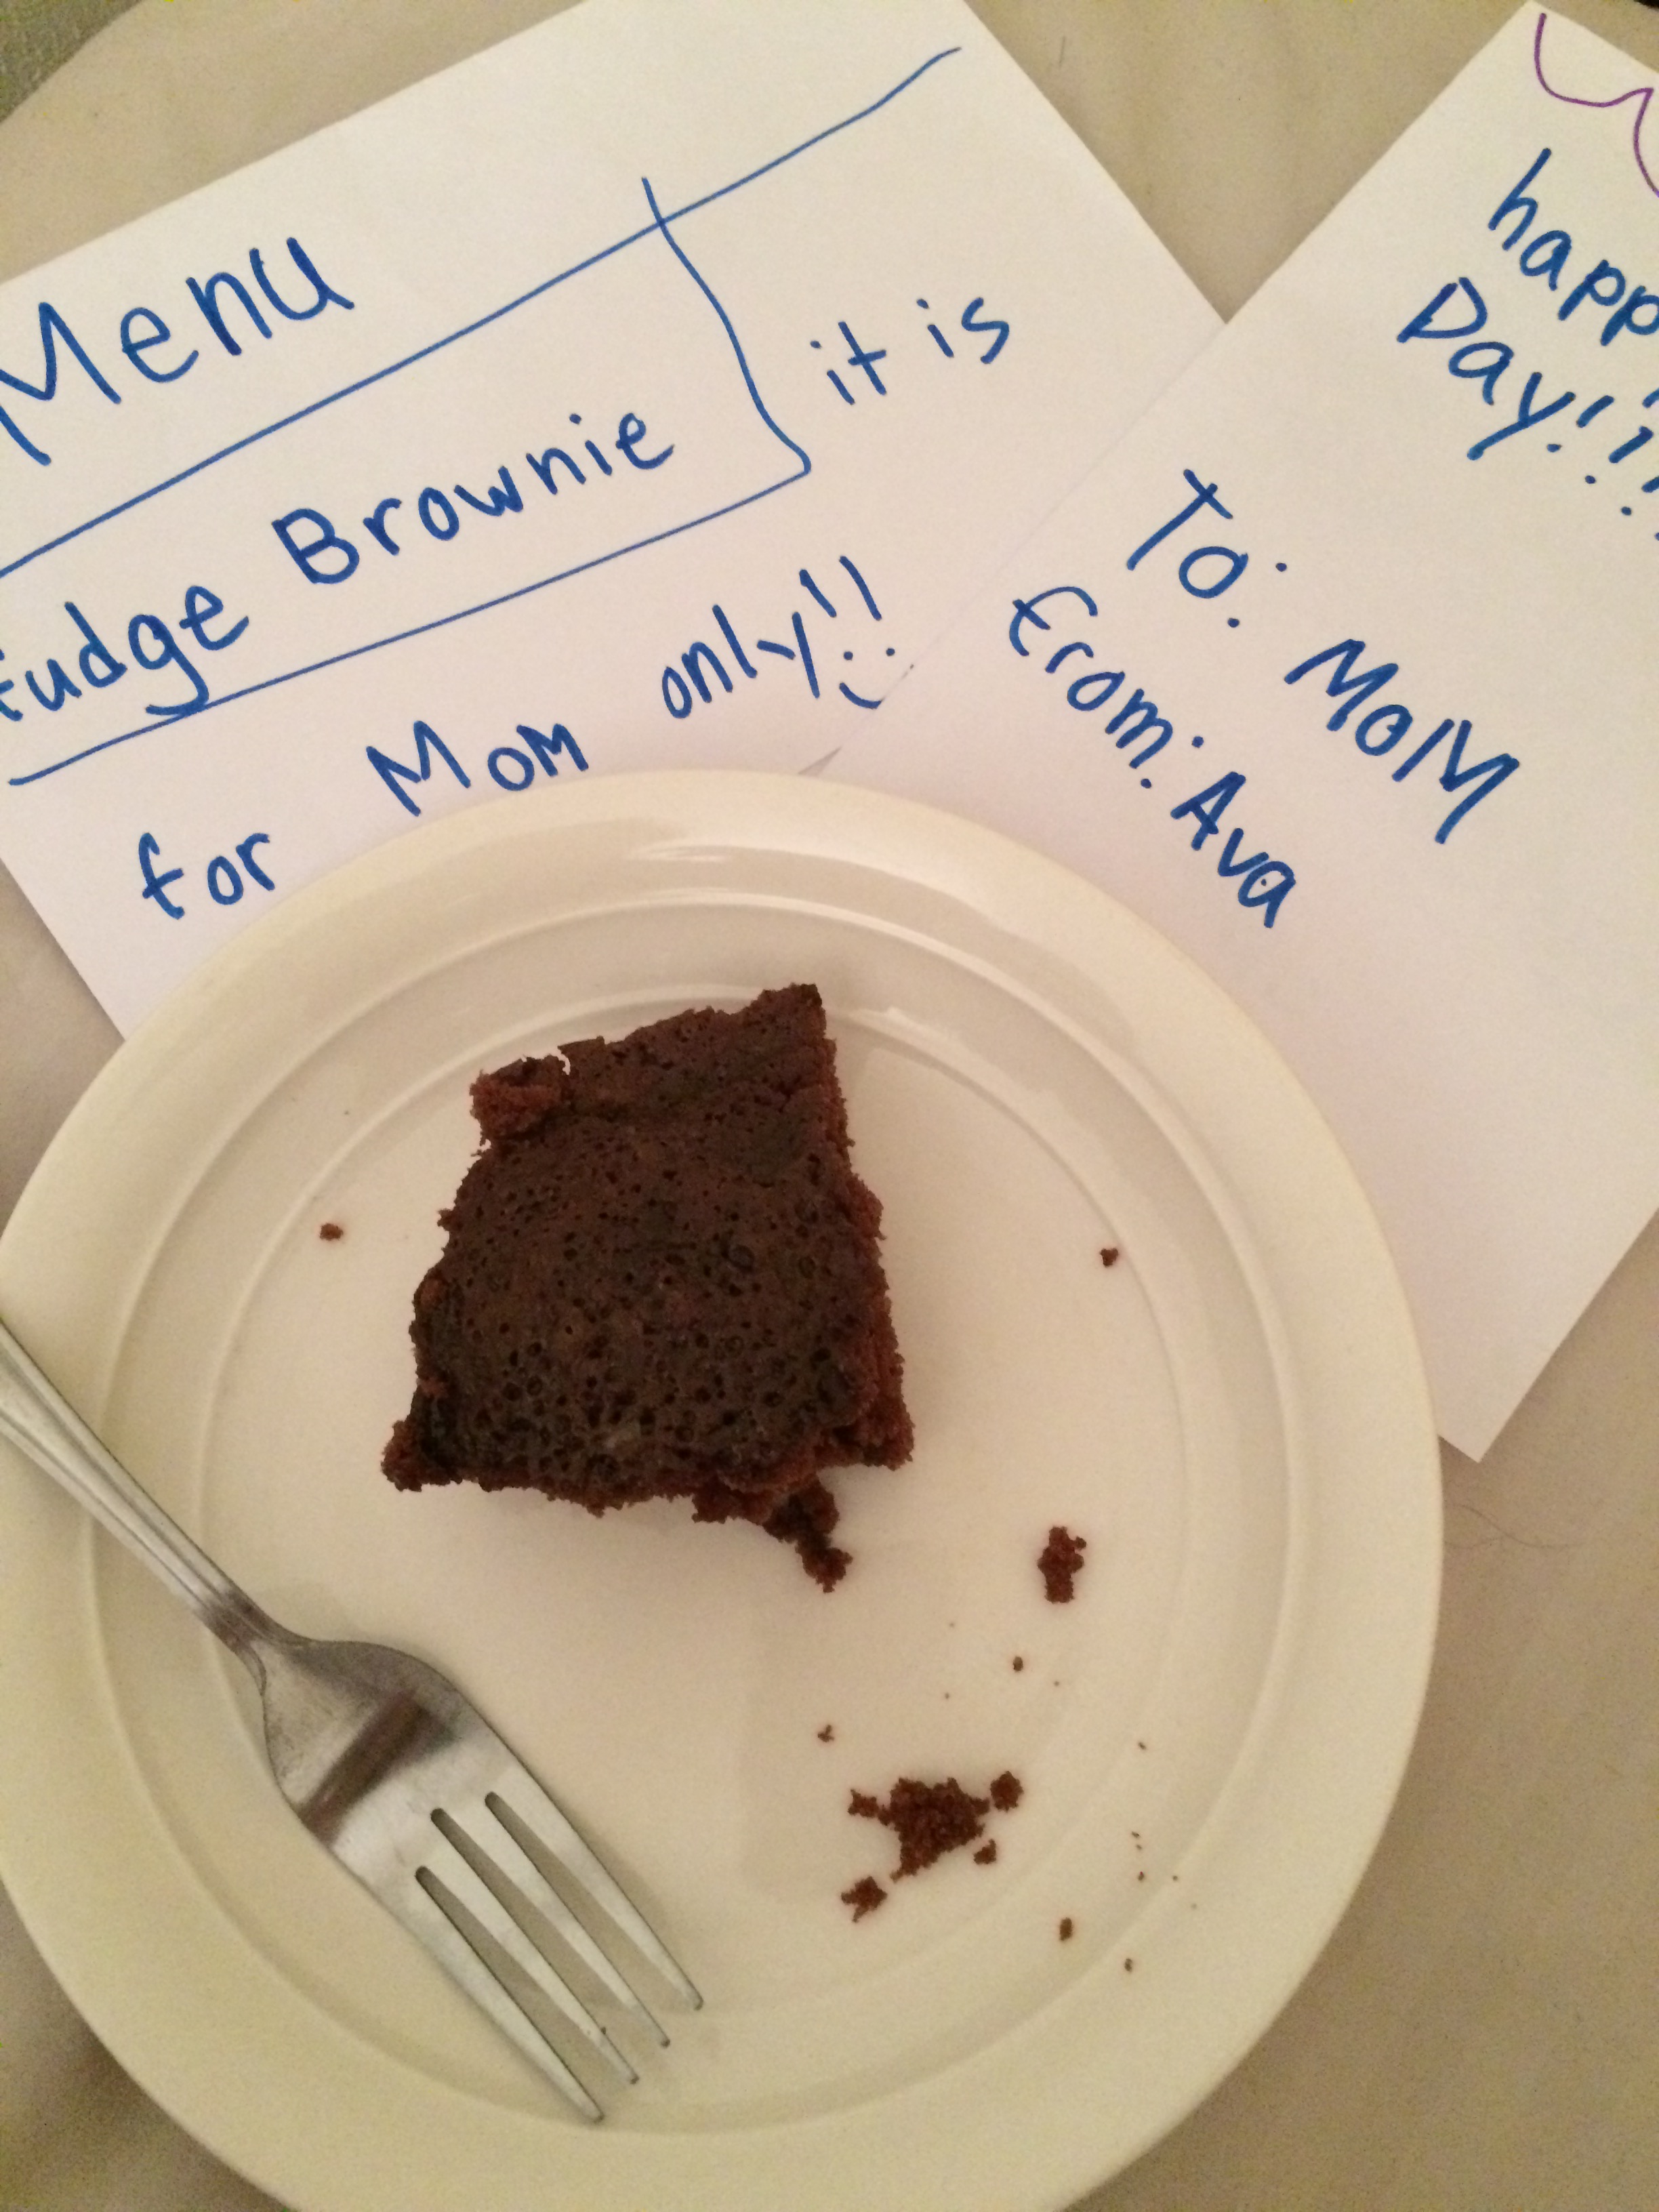 Menu
fudge Brownie
it is
for Mom only!!
happ
Day!!!
To: MoM
From: Ava